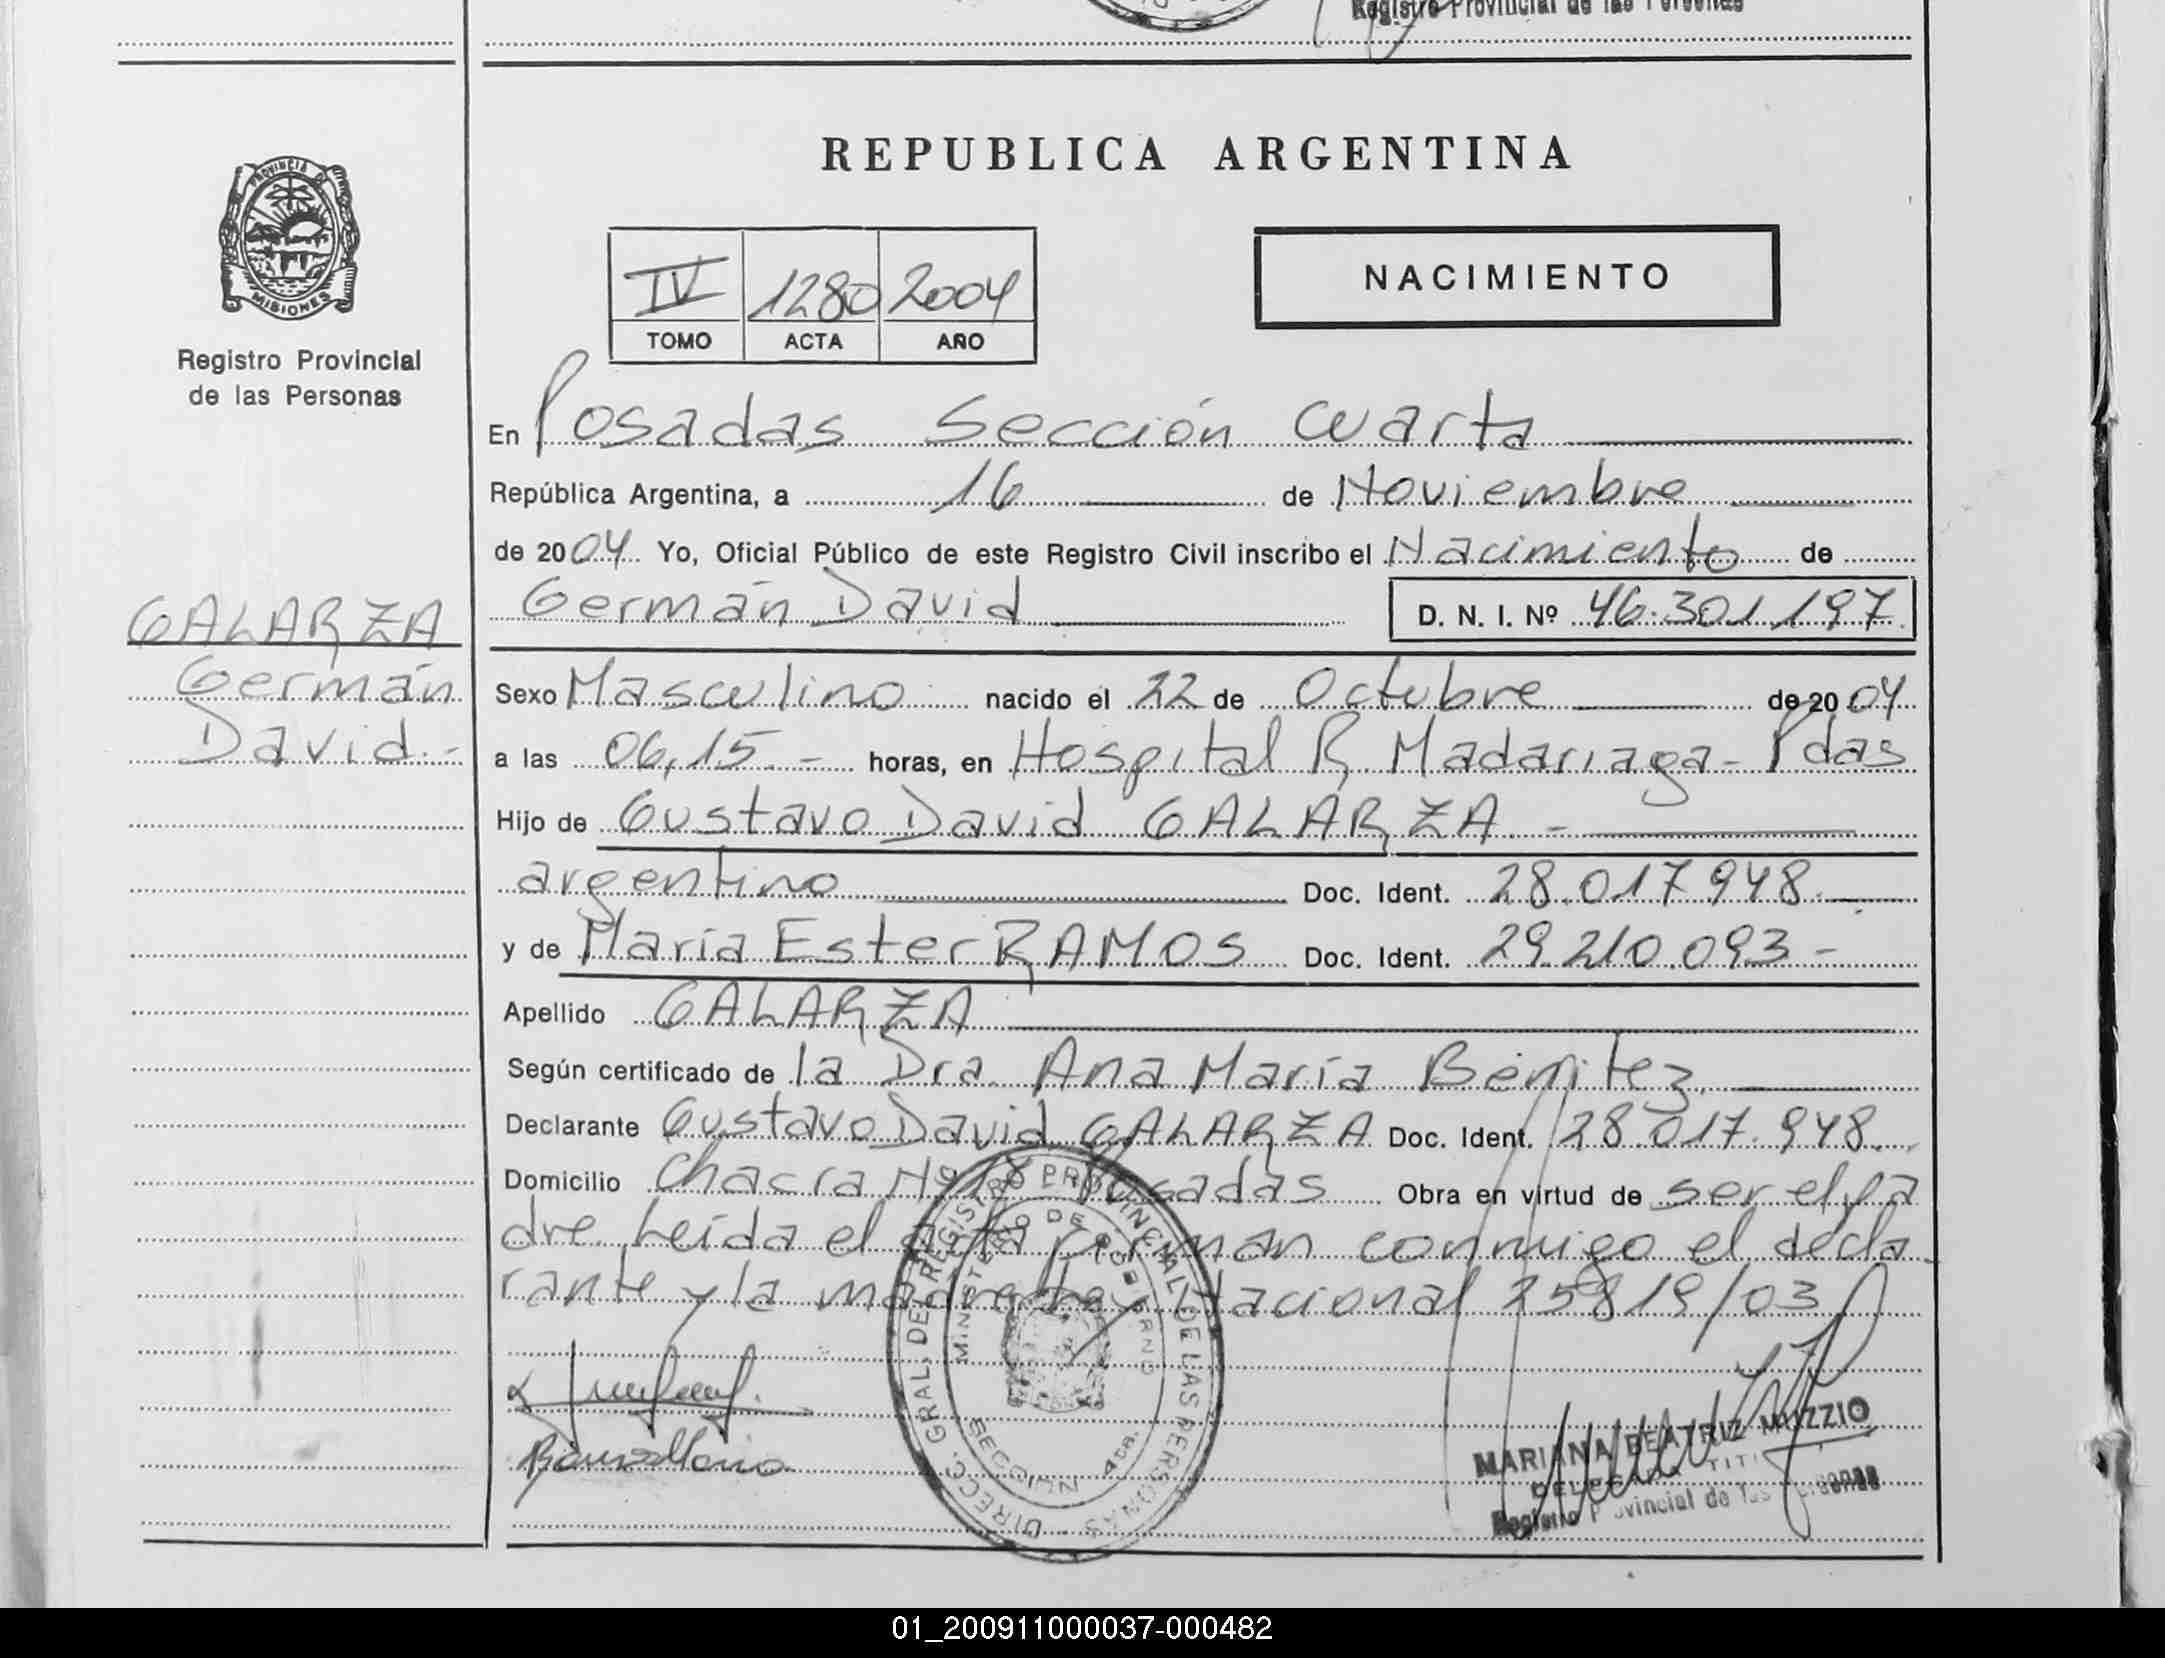 Registro Provincial de las Personas
REPUBLICA ARGENTINA
PROVINCIA D
MISIONES
Registro Provincial
de las Personas
IV 1280 2004
TOMO ACTA AÑO
NACIMIENTO
En Posadas Sección Cuarta
República Argentina, a 16 de Noviembre
de 2004 Yo, Oficial Público de este Registro Civil inscribo el Nacimiento de
Germán David D. N. I. Nº 46.301.197
GALARZA
Germán
David.-
Sexo Masculino nacido el 22 de Octubre de 2004
a las 06,15.- horas, en Hospital R. Madariaga- Pdas
Hijo de Gustavo David GALARZA.-
argentino Doc. Ident. 28.017.948.
y de María Ester RAMOS Doc. Ident. 29.210.093-
Apellido GALARZA
Según certificado de la Dra. Ana María Benitez.
Declarante Gustavo David GALARZA Doc. Ident. 28.017.948.
Domicilio Chacra Nº Posadas Obra en virtud de ser el pa
dre. Leida el acta firman conmigo el decla
rante y la madre. Ley Nacional 25819/03
DIRECC. GRAL. DEL REGISTRO PROVINCIAL DE LAS PERSONAS
MINISTERIO DE GOBIERNO
SECCION 4ta.
MARIANA BEATRIZ MUZZIO
Registro Provincial de las Personas
01_200911000037-000482